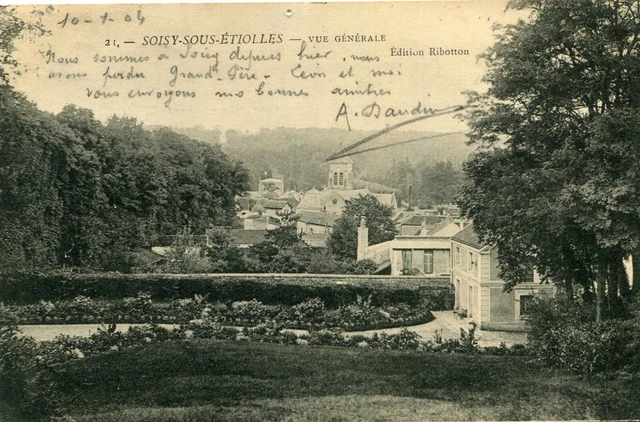 10-1-04
21. — SOISY-SOUS-ÉTIOLLES — VUE GÉNÉRALE
Édition Ribotton
Nous sommes à Soisy depuis hier, nous
avons perdu Grand-Père. Léon et moi
vous envoyons nos bonnes amitiés
A.